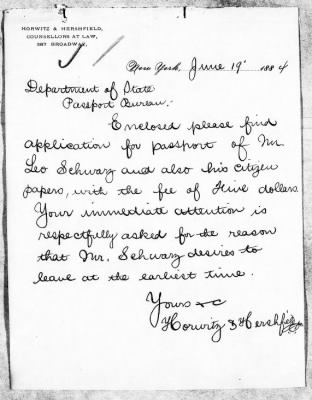 HORWITZ & HERSHFIELD,
COUNSELLORS AT LAW,
287 BROADWAY.
New York, June 19' 1884
Department of State
Passport Bureau.
Enclosed please find
application for passport of Mr.
Leo Schwarz and also his citizen
papers, with the fee of Five dollars.
Your immediate attention is
respectfully asked for the reason
that Mr. Schwarz desires to
leave at the earliest time.
Yours &c
Horwitz & Hershfield